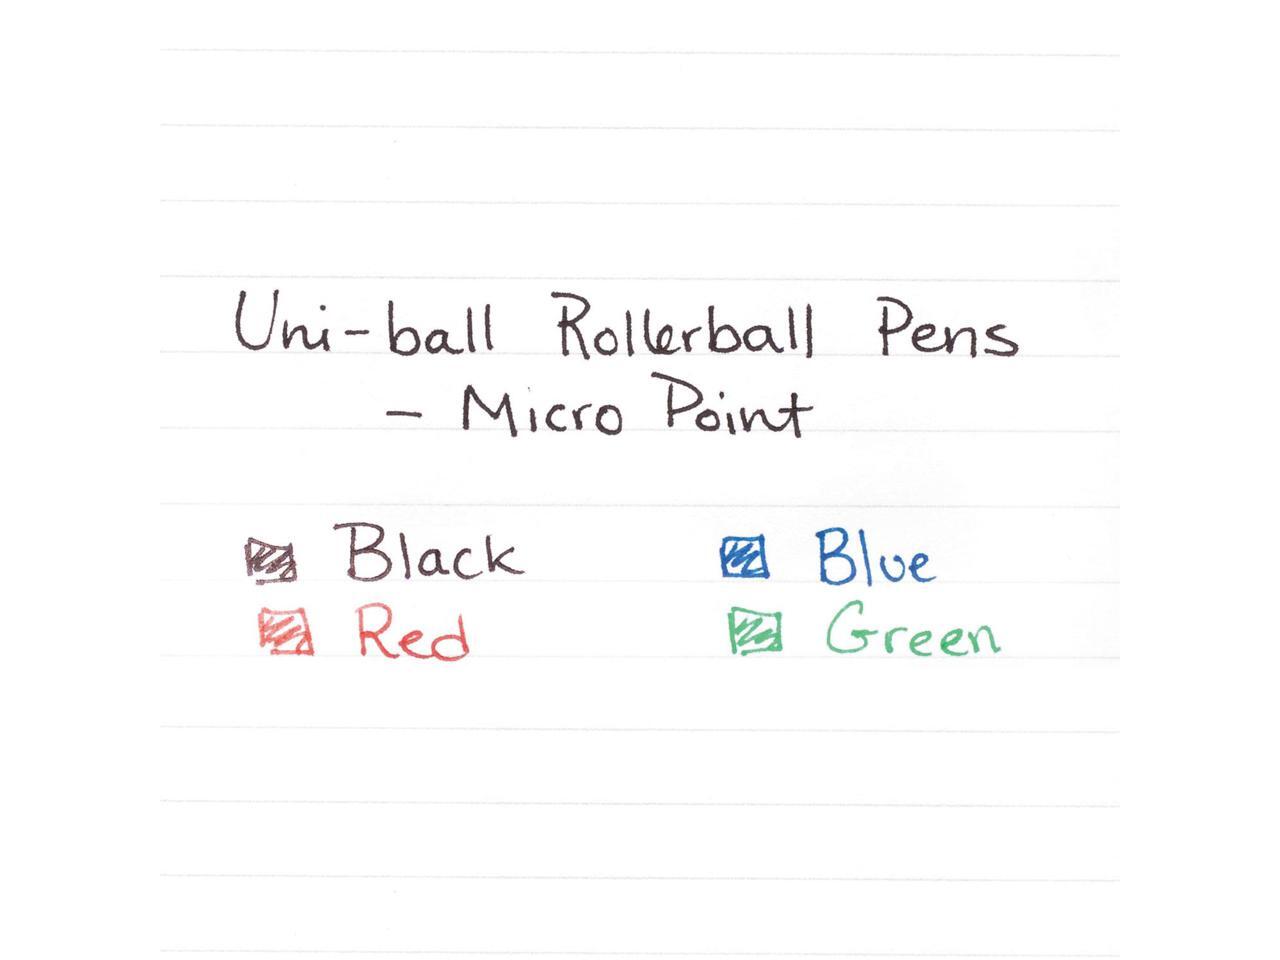 Uni-ball Rollerball Pens
- Micro Point
Black Blue
Red Green